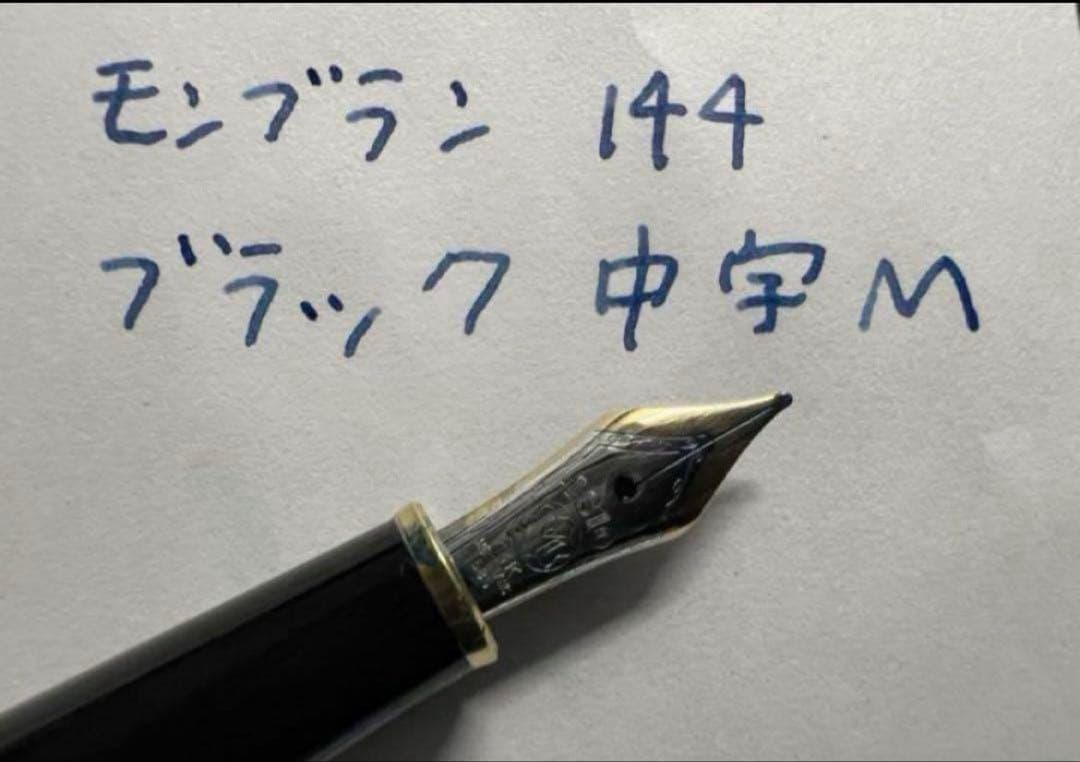 モンブラン 144
ブラック 中字 M